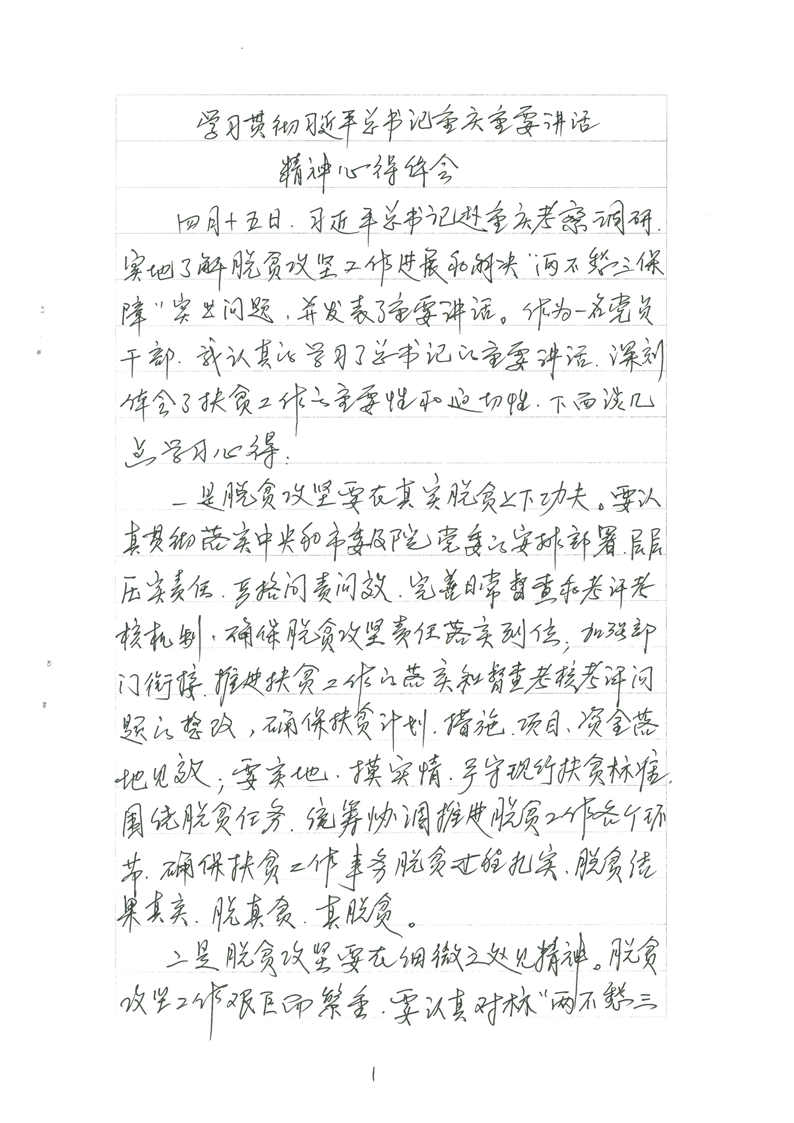 学习贯彻习近平总书记重庆重要讲话
精神心得体会
四月十五日，习近平总书记赴重庆考察调研，
实地了解脱贫攻坚工作进展和解决“两不愁三保
障”突出问题，并发表了重要讲话。作为一名党员
干部，我认真的学习了总书记的重要讲话，深刻
体会了扶贫工作的重要性和迫切性，下面谈几
点学习心得：
一是脱贫攻坚要在真实脱贫上下功夫。要认
真贯彻落实中央和市委及院党委的安排部署，层层
压实责任，严格问责问效，完善日常督查和考评考
核机制，确保脱贫攻坚责任落实到位；加强部
门衔接，推进扶贫工作的落实和督查考核考评问
题的整改，确保扶贫计划、措施、项目、资金落
地见效；要实地、摸实情，严守现行扶贫标准，
围绕脱贫任务，统筹协调推进脱贫工作各个环
节，确保扶贫工作事务脱贫过程扎实、脱贫结
果真实，脱真贫、真脱贫。
二是脱贫攻坚要在细微之处见精神。脱贫
攻坚工作艰巨而繁重，要认真对标“两不愁三
1